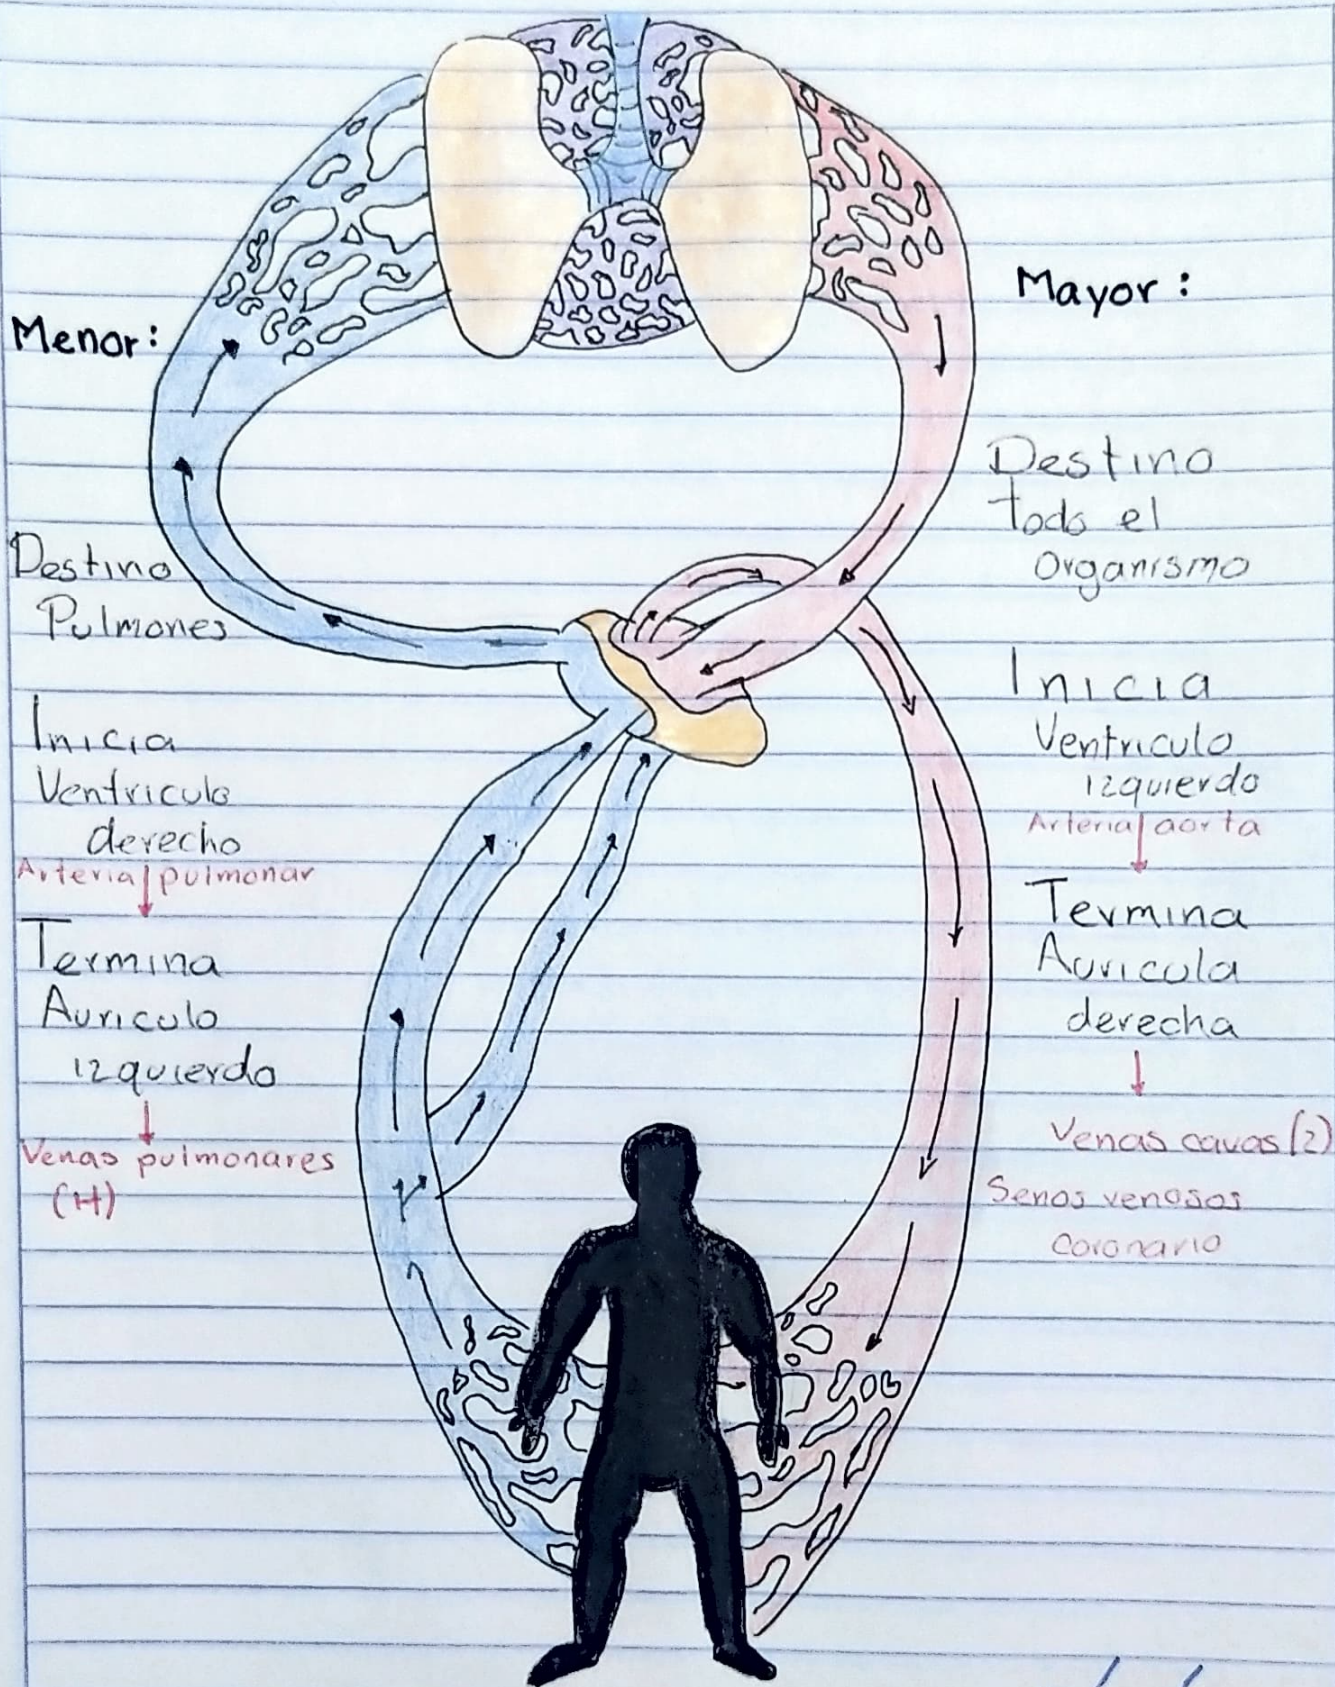 Menor:
Destino
Pulmones
Inicia
Ventriculo
derecho
Arteria pulmonar
Termina
Auriculo
izquierdo
Venas pulmonares
(4)
Mayor:
Destino
todo el
Organismo
Inicia
Ventriculo
izquierdo
Arteria aorta
Termina
Auricula
derecha
Venas cavas (2)
Senos venosos
coronario